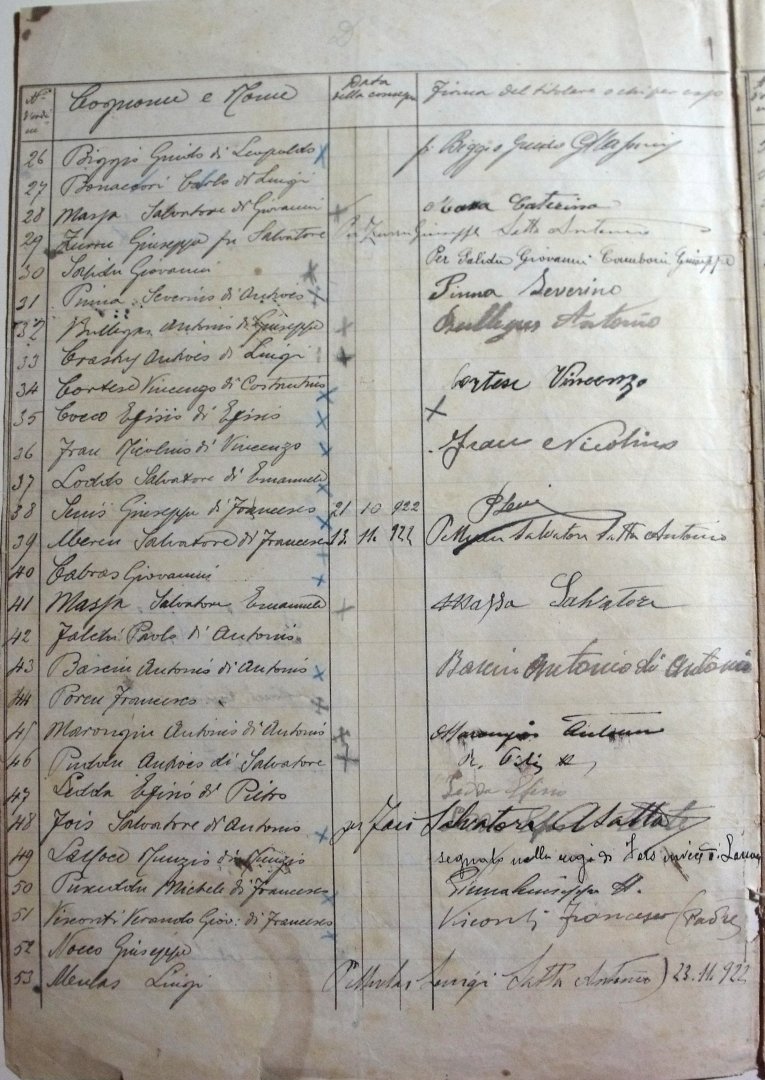 D
N° d'ordine Cognome e Nome Data della consegna Firma del titolare o chi per esso
26 Biggio Guido di Leopoldo p. Biggio Guido
27 Bonaccori Carlo di Luigi
28 Massa Salvatore di Giovanni Massa Caterina
29 Zurru Giuseppe fu Salvatore Per Zurru Giuseppe Satta Antonio
30 Salidu Giovanni Per Salidu Giovanni Giuseppe
31 Pinna Severino di Pinna Severino
32 Antonio di Giuseppe Antonio
33 di Luigi
34 Cortese Vincenzo di Costantino Cortese Vincenzo
35 Cocco Efisio di Efisio
36 Frau Nicolino di Vincenzo Frau Nicolino
37 Loddo Salvatore di Emanuele
38 Senis Giuseppe di Francesco 21 10 922
39 Mereu Salvatore di Francesco 13 11 922 Salvatore Satta Antonio
40 Cabras Giovanni
41 Massa Salvatore Emanuele Massa Salvatore
42 Falchi Paolo di Antonio
43 Basciu Antonio di Antonio Basciu Antonio di Antonio
44 Porcu Francesco
45 Marongiu Antonio di Antonio Marongiu Antonio
46 Puddu di Salvatore
47 Ledda Efisio di Pietro Ledda Efisio
48 Fois Salvatore di Antonio per Fois Salvatore Satta
49 Nunzio di Nunzio segnato nella riga di
50 Puxeddu Michele di Francesco Pinna Giuseppe
51 Visconti Verando Giov: di Francesco Visconti Francesco (Padre)
52 Nocco Giuseppe
53 Meulas Luigi P. Meulas Luigi Satta Antonio) 23.11.922